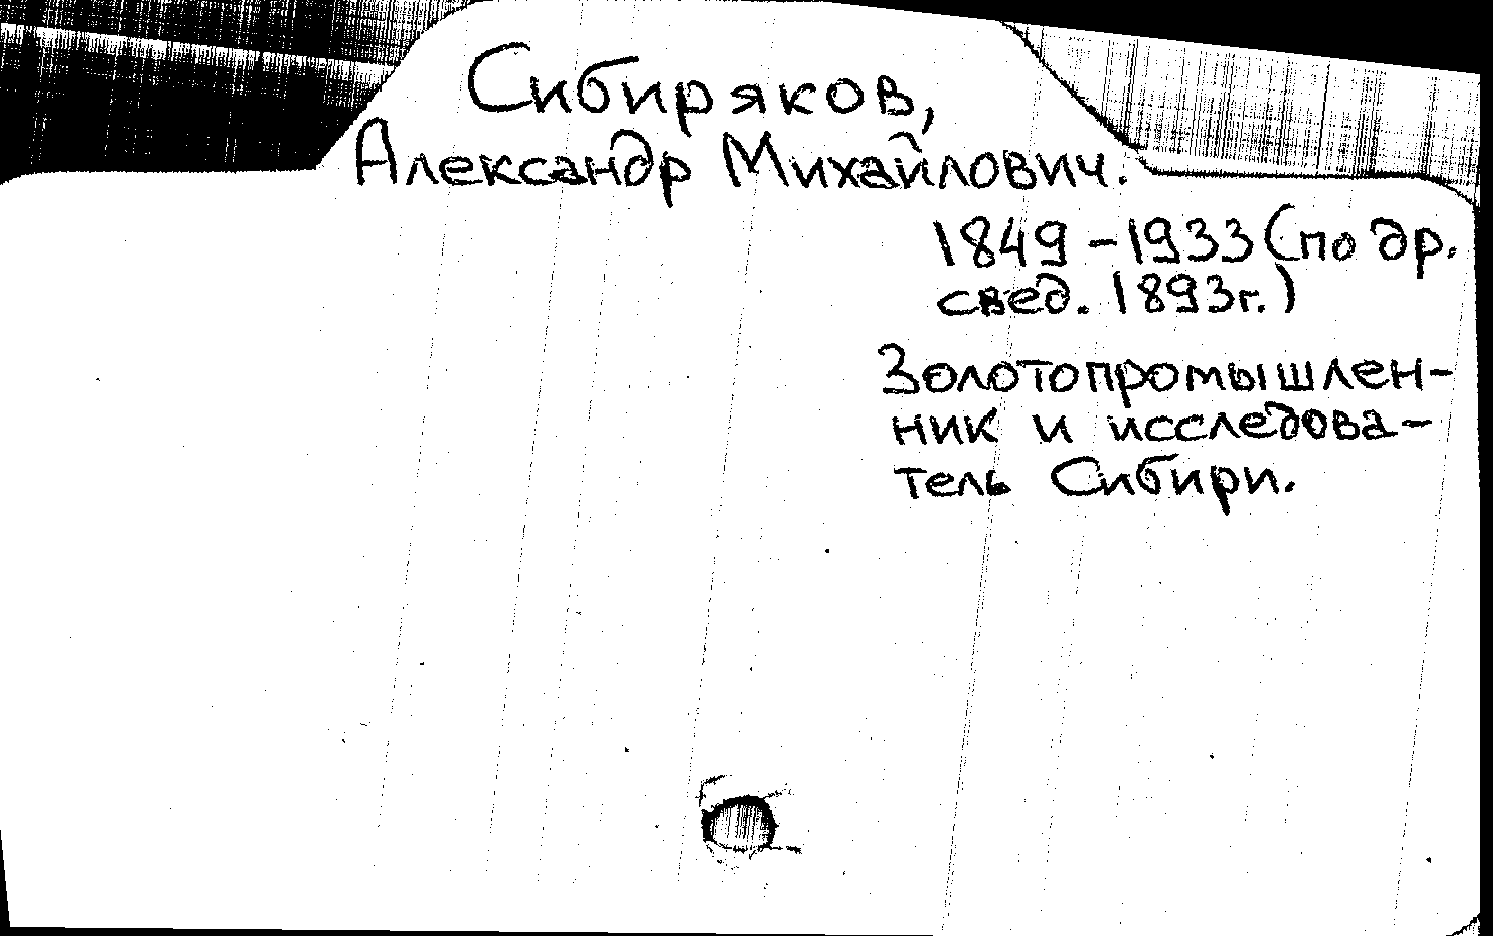 Сибиряков,
Александр Михайлович.
1849 - 1933 (по др.
свед. 1893г.)
Золотопромышлен-
ник и исследова-
тель Сибири.